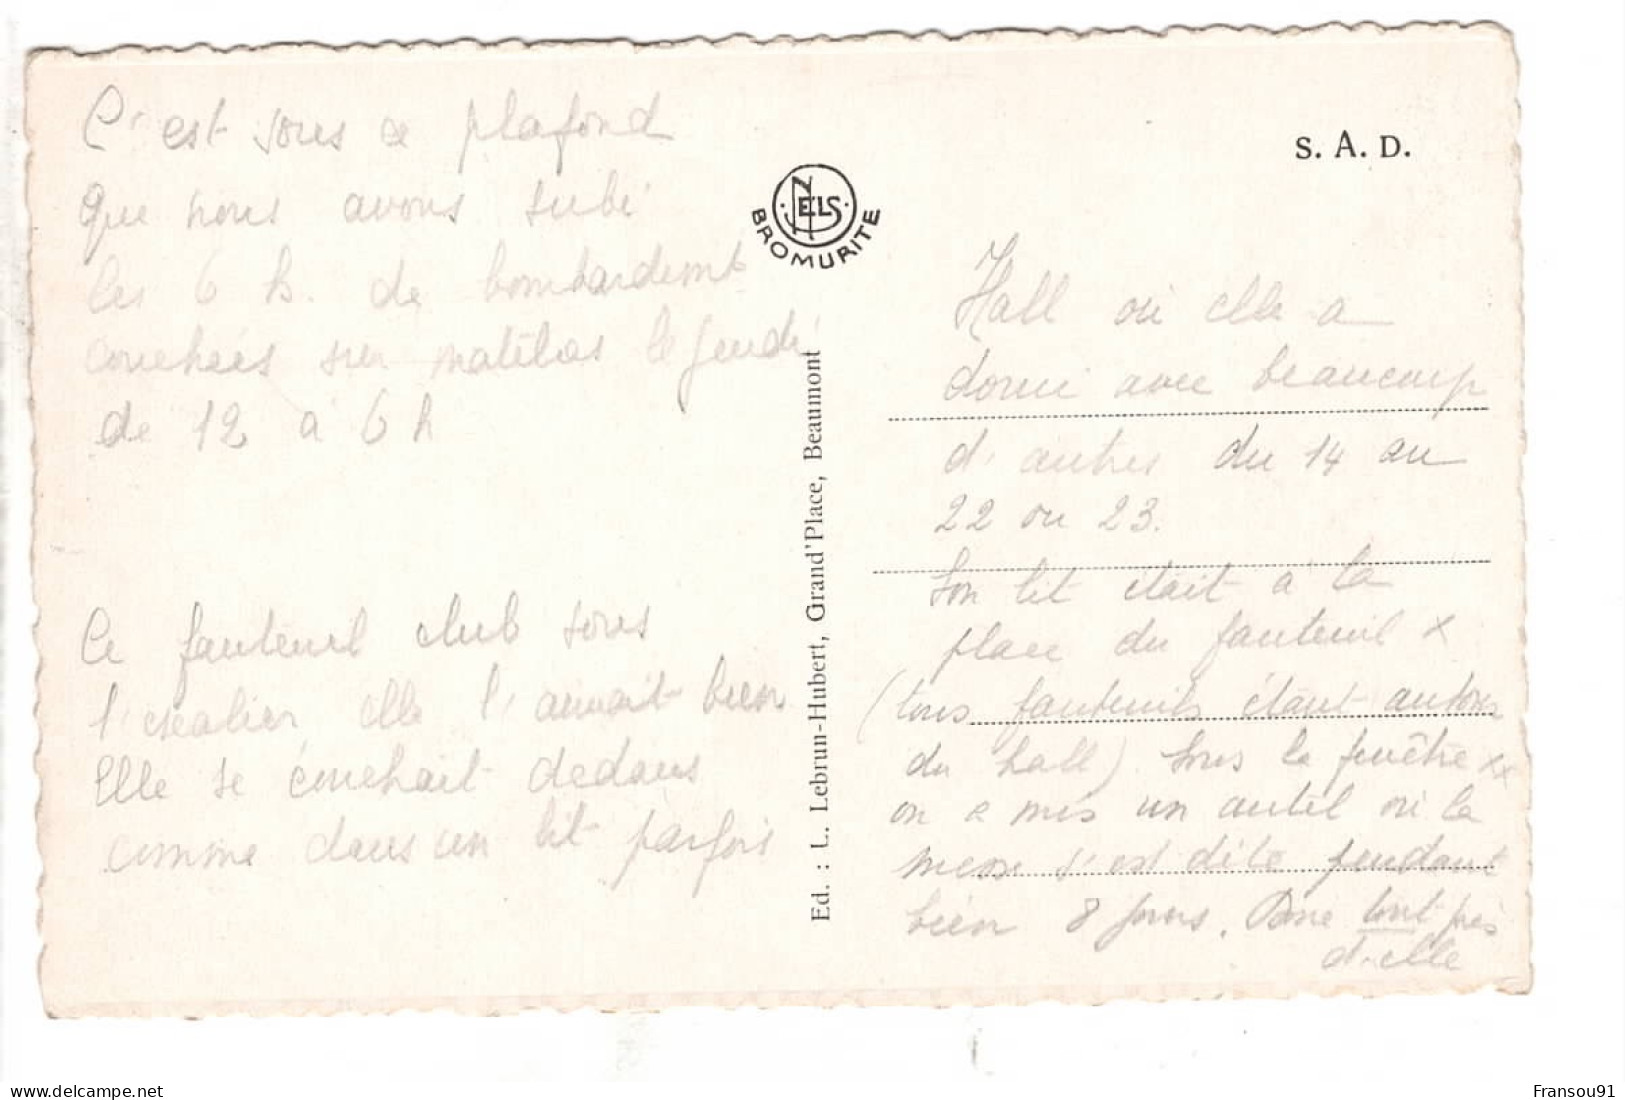 C'est sous ce plafond
que nous avons subi
les 6 h. de bombardemt
couchées sur matelas le jeudi
de 12 à 6 h
Ce fauteuil club sous
l'escalier elle l'aimait bien
Elle se couchait dedans
comme dans un lit parfois
NELS
BROMURITE
Ed. : L. Lebrun-Hubert, Grand'Place, Beaumont
S. A. D.
Hall où elle a
dormi avec beaucoup
d'autres du 14 au
22 ou 23.
Son lit était à la
place du fauteuil x
(tous fauteuils étant autour
du hall). Sous la fenêtre xx
on a mis un autel où la
messe s'est dite pendant
bien 8 jours. Donc tout près
d'elle
www.delcampe.net
Fransou91